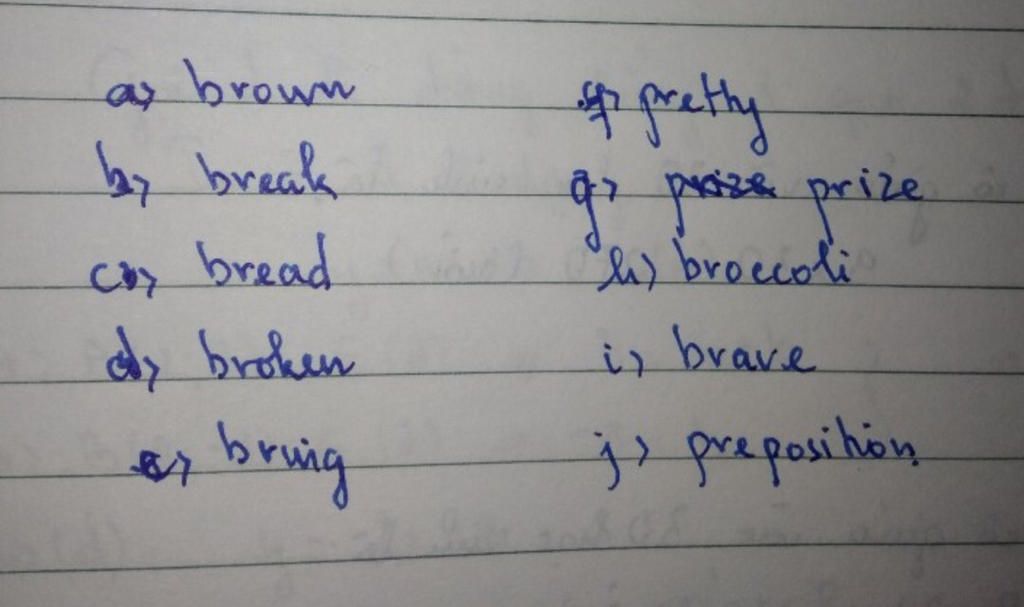 a) brown
b) break
c) bread
d) broken
e) bring
f) pretty
g) prize prize
h) broccoli
i) brave
j) preposition